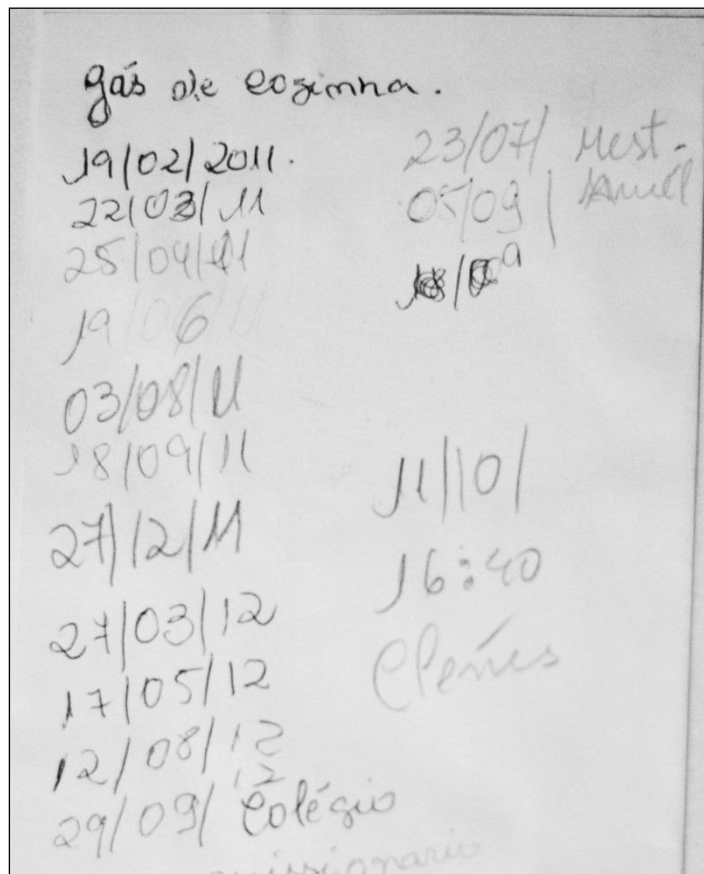 gás de cozinha.
19/02/2011.
22/03/11
25/04/11
19/06/11
03/08/11
18/09/11
27/12/11
27/03/12
17/05/12
12/08/12
29/09/12 Colégio
missionario
23/07/ Mest.
05/09/
11/10/
16:40
Clenis